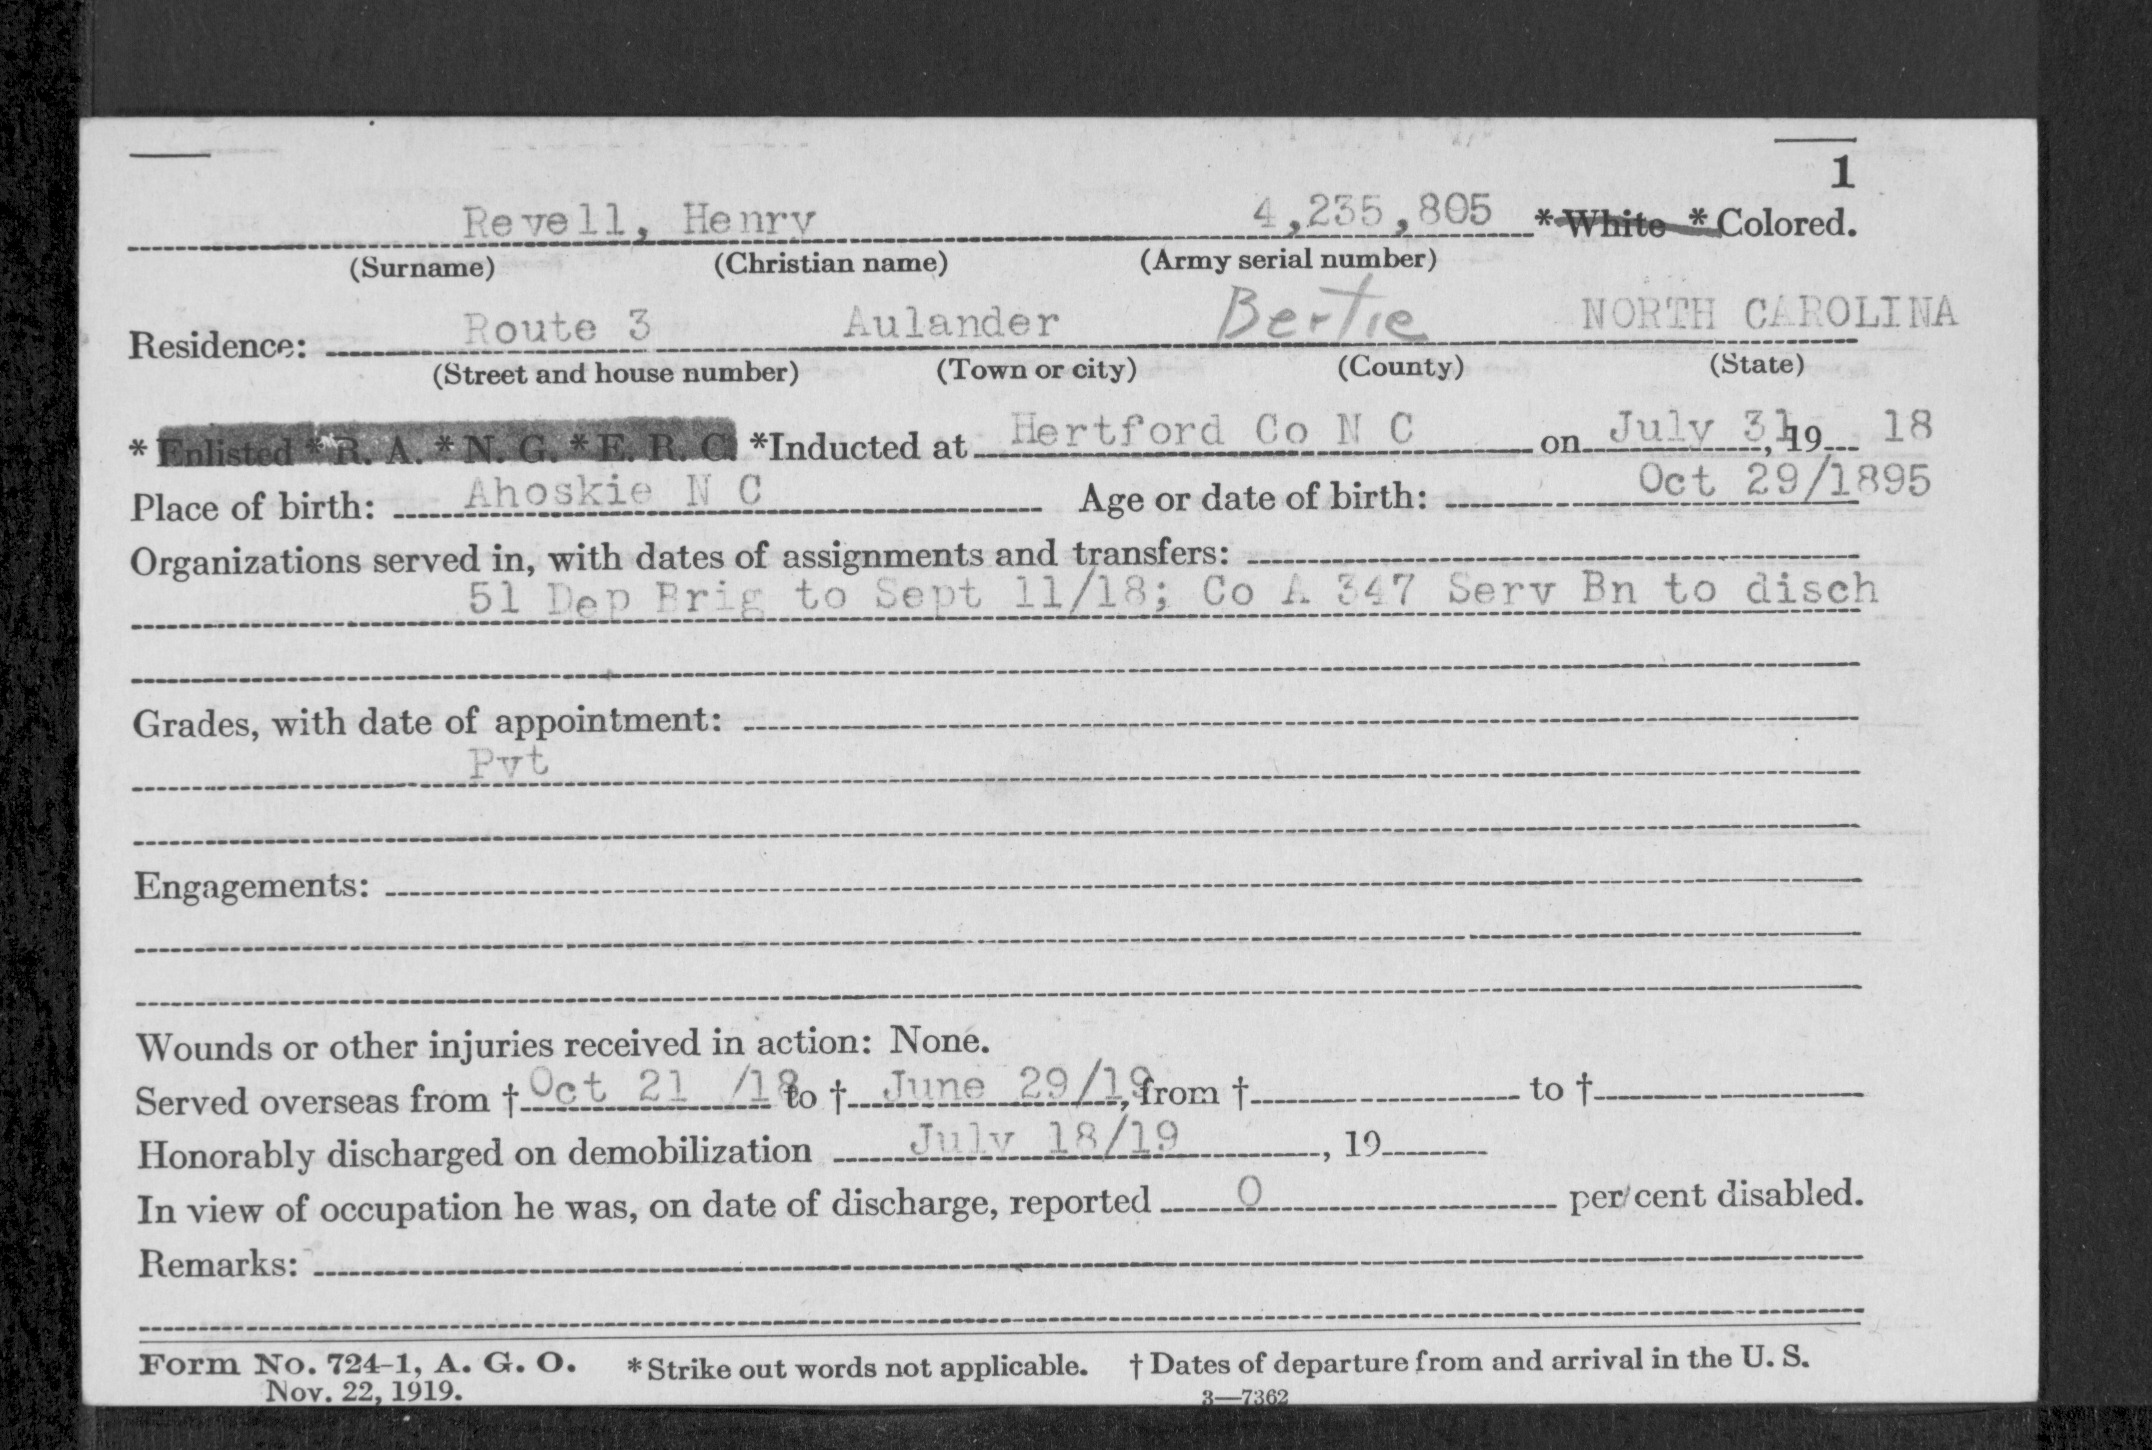 1
Revell, Henry 4,235,805 *White *Colored.
(Surname) (Christian name) (Army serial number)
Residence: Route 3 Aulander Bertie NORTH CAROLINA
(Street and house number) (Town or city) (County) (State)
*Enlisted *R. A. *N. G. *E. R. C. *Inducted at Hertford Co N C on July 31, 19 18
Place of birth: Ahoskie N C Age or date of birth: Oct 29/1895
Organizations served in, with dates of assignments and transfers:
51 Dep Brig to Sept 11/18; Co A 347 Serv Bn to disch
Grades, with date of appointment:
Pvt
Engagements:
Wounds or other injuries received in action: None.
Served overseas from † Oct 21 /18 to † June 29/19, from † to †
Honorably discharged on demobilization July 18/19, 19
In view of occupation he was, on date of discharge, reported 0 per cent disabled.
Remarks:
Form No. 724-1, A. G. O. *Strike out words not applicable. † Dates of departure from and arrival in the U. S.
Nov. 22, 1919. 3—7362